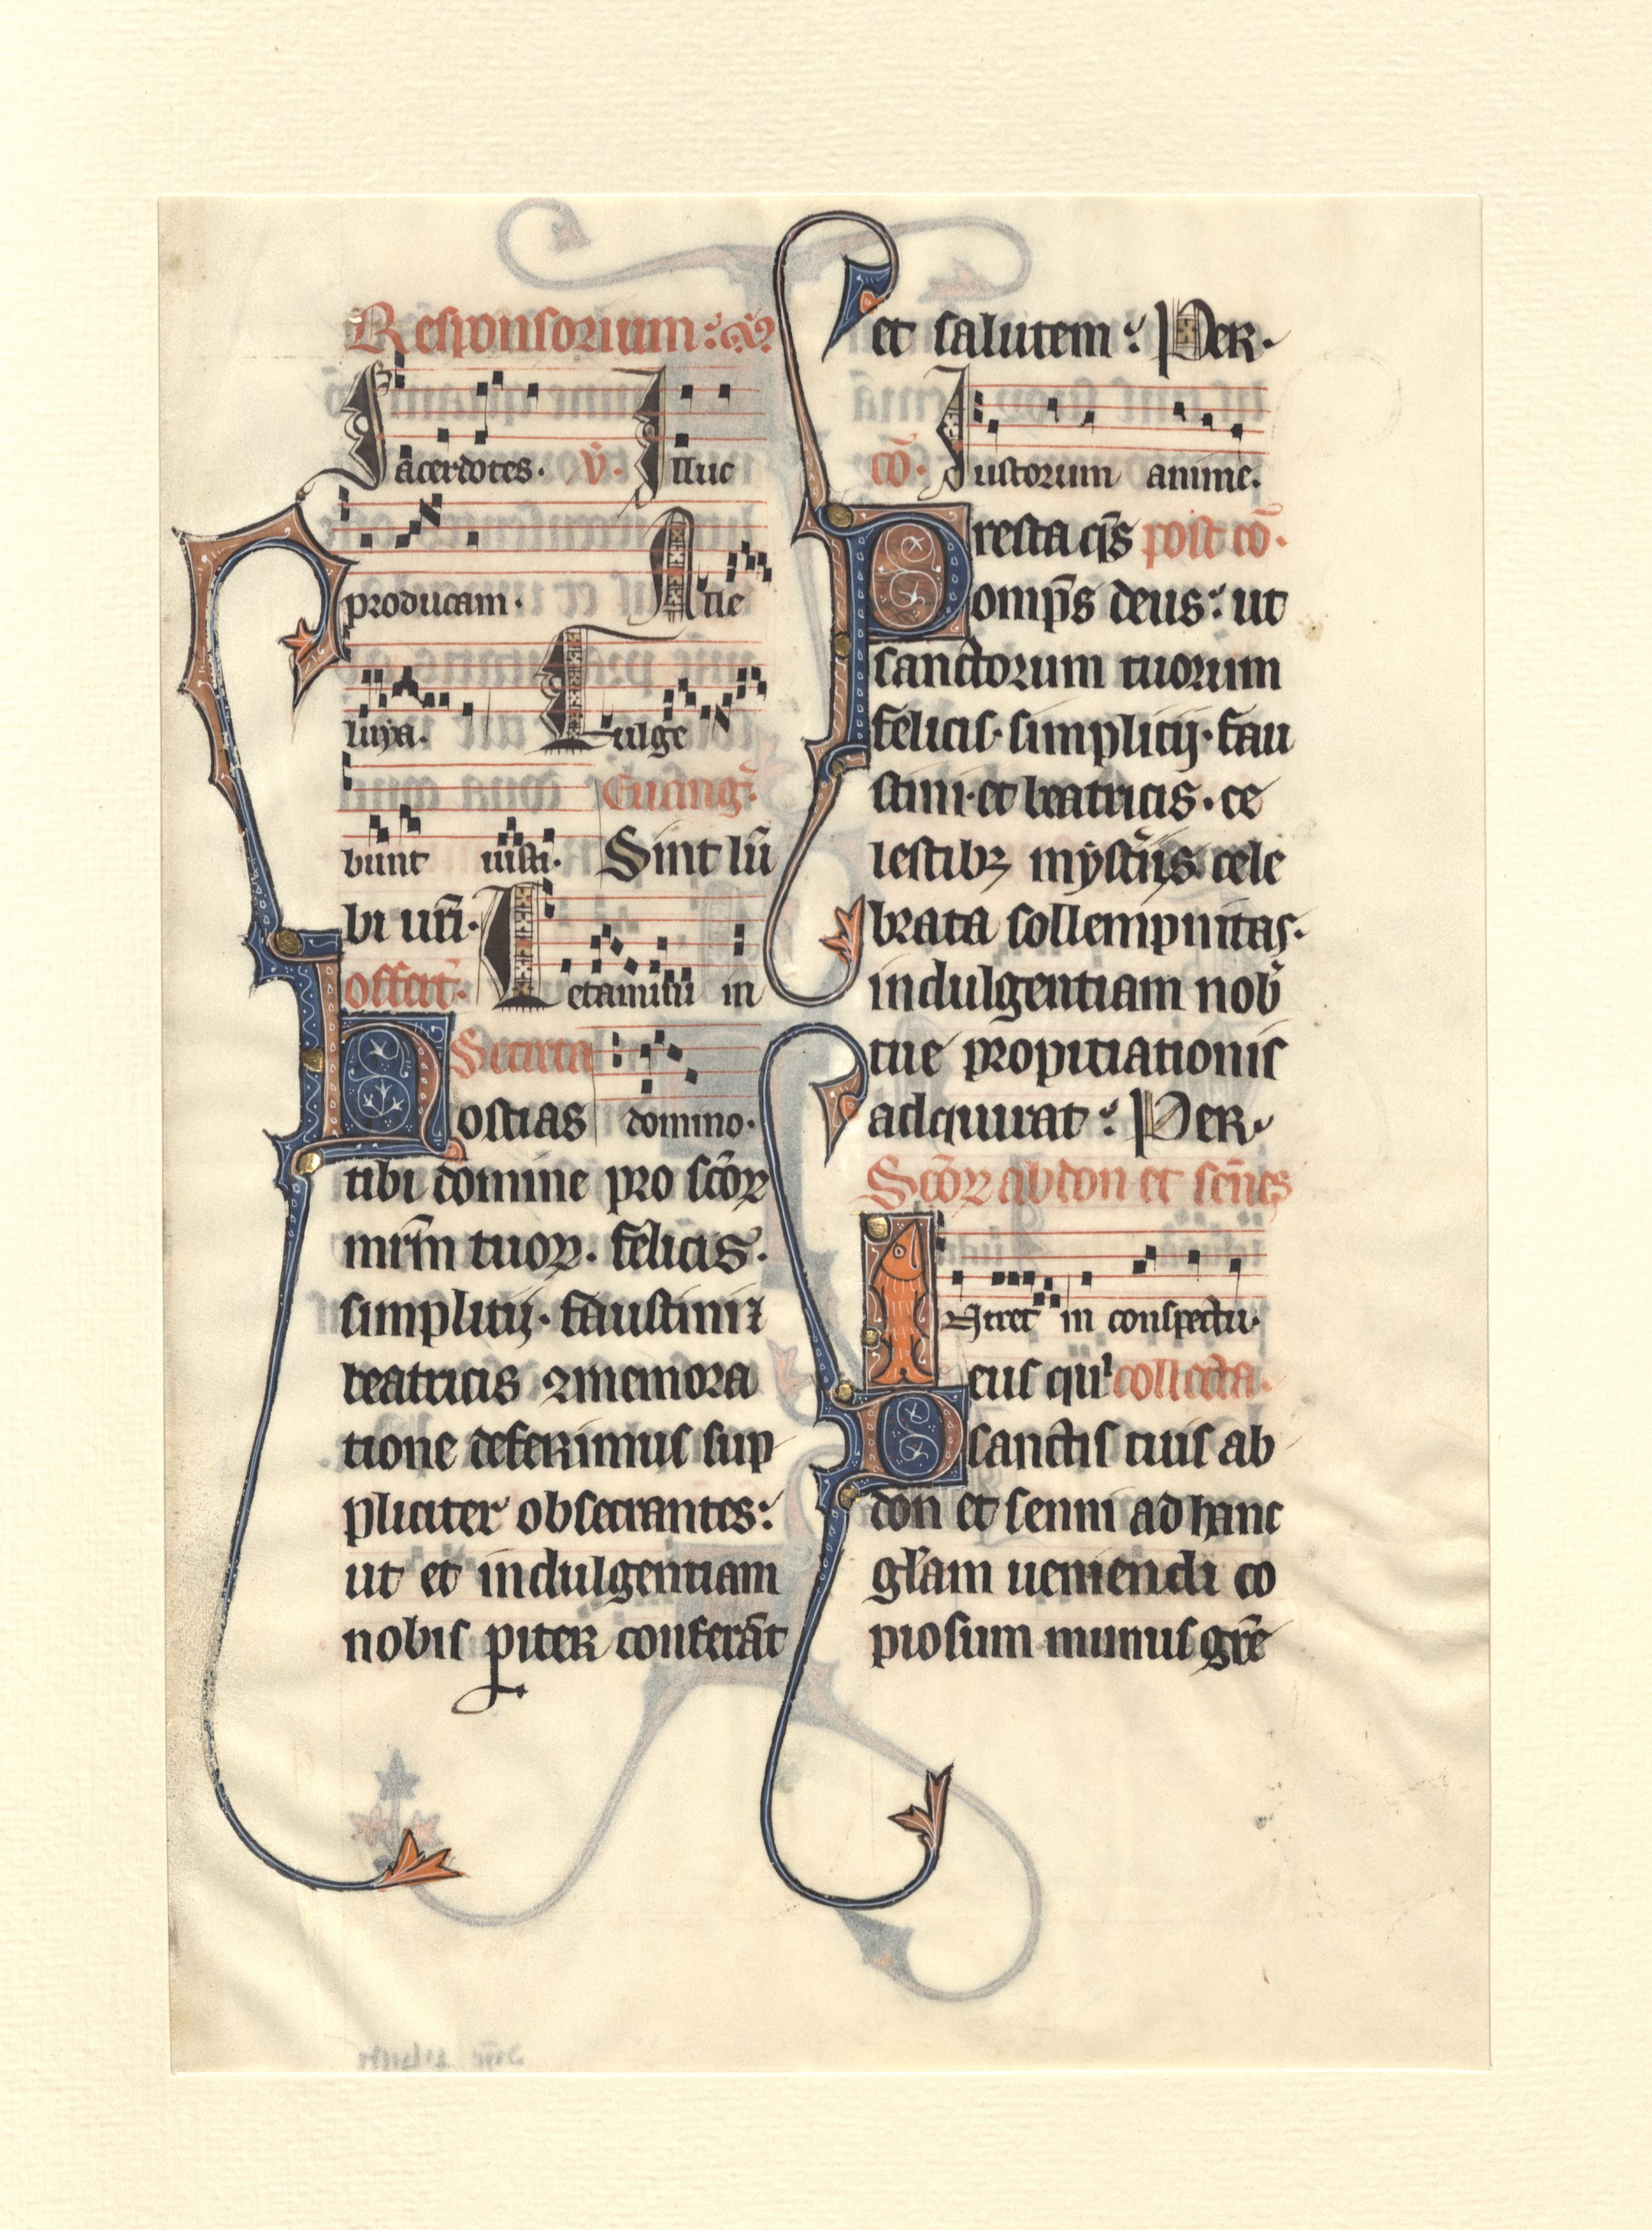 Responsorium:
Sacerdotes. v̄. Illuc
producam. Alle
luya. Fulge
Euang̃.
bunt iusti. Sint lū
bi ur̄i.
offert̃. Letamini in
Secreta
Hostias domino.
tibi domine pro sc̄oꝝ
mr̄m tuoꝝ. felicis.
simplicij. faustini ⁊
beatricis ꝯmemora
tione deferimus sup
pliciter obsecrantes:
ut et indulgentiam
nobis piter conferāt
et salutem: Per.
cō. Iustorum anime.
Presta qs̄ post cō.
omp̄s deus: ut
sanctorum tuorum
felicis. simplicij. fau
stini. et beatricis. ce
lestibꝫ myst̃iis cele
brata sollempnitas.
indulgentiam nob̃
tue propitiationis
adquirat: Per.
Sc̄oꝝ abdon et sēnes
Intret in conspectu.
Deus qui collecta.
sanctis tuis ab
don et senni ad hanc
gl̃am ueniendi co
piosum munus gr̄e